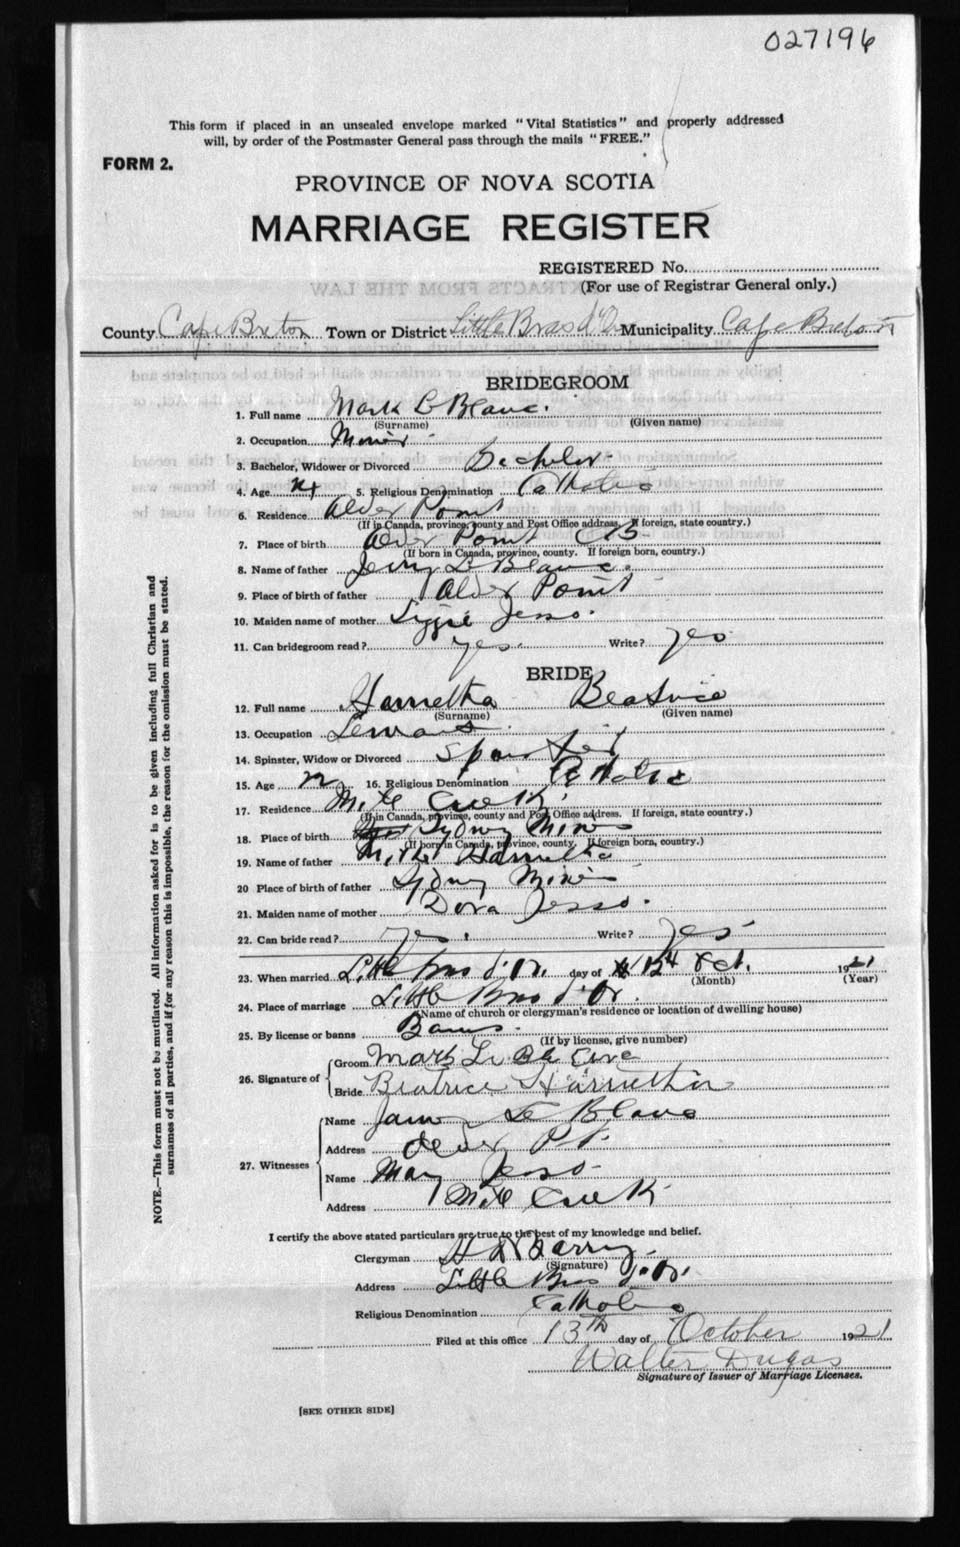 027196
This form if placed in an unsealed envelope marked "Vital Statistics" and properly addressed
will, by order of the Postmaster General pass through the mails "FREE."
FORM 2.
PROVINCE OF NOVA SCOTIA
MARRIAGE REGISTER
REGISTERED No.
(For use of Registrar General only.)
County Cape Breton Town or District Little Bras d'Or Municipality Cape Breton
BRIDEGROOM
1. Full name Mark LeBlanc.
(Surname) (Given name)
2. Occupation Miner
3. Bachelor, Widower or Divorced Bachelor
4. Age 5. Religious Denomination Catholic
6. Residence Alder Point
(If in Canada, province, county and Post Office address. If foreign, state country.)
7. Place of birth Alder Point CB
(If born in Canada, province, county. If foreign born, country.)
8. Name of father Jerry LeBlanc.
9. Place of birth of father Alder Point
10. Maiden name of mother Lizzie Jesso.
11. Can bridegroom read? yes. Write? yes
BRIDE
12. Full name Harrietha Beatrice
(Surname) (Given name)
13. Occupation Servant
14. Spinster, Widow or Divorced Spinster
15. Age 16. Religious Denomination Catholic
17. Residence Mill Creek
(If in Canada, province, county and Post Office address. If foreign, state country.)
18. Place of birth Sydney Mines
(If born in Canada, province, county. If foreign born, country.)
19. Name of father Harrietha
20 Place of birth of father Sydney Mines
21. Maiden name of mother Dora Jesso.
22. Can bride read? Yes. Write? Yes
23. When married Little Bras d'Or. day of Oct. 1921
(Month) (Year)
24. Place of marriage Little Bras d'Or.
(Name of church or clergyman's residence or location of dwelling house)
25. By license or banns Banns.
(If by license, give number)
26. Signature of Groom Mark Le Blanc
Bride Beatrice Harrietha
27. Witnesses
Name James Le Blanc
Address Alder Pt.
Name Mary Jesso
Address Mill Creek
I certify the above stated particulars are true to the best of my knowledge and belief.
Clergyman
(Signature)
Address Little Bras d'Or.
Religious Denomination Catholic
Filed at this office 13th day of October 1921
Walter Dugas
Signature of Issuer of Marriage Licenses.
[SEE OTHER SIDE]
NOTE.—This form must not be mutilated. All information asked for is to be given including full Christian and
surnames of all parties, and if for any reason this is impossible, the reason for the omission must be stated.